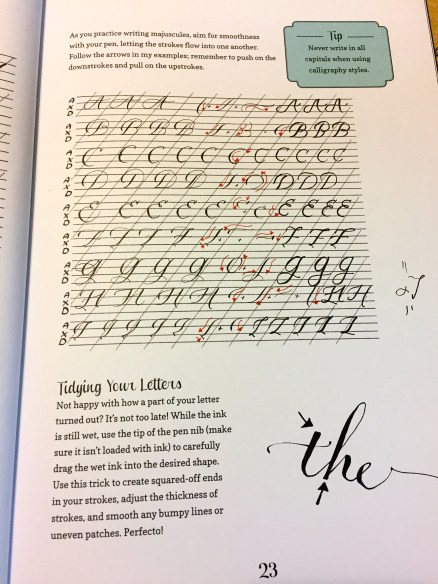 As you practice writing majuscules, aim for smoothness
with your pen, letting the strokes flow into one another.
Follow the arrows in my examples; remember to push on the
downstrokes and pull on the upstrokes.
Tip
Never write in all
capitals when using
calligraphy styles.
A X D A A A A A A
A X D B B B B B B B
A X D C C C C C C C C C
A X D D D D D D D D
A X D E E E E E E E E
A X D
A X D G G G G G G G
A X D H H H H H H
A X D
Tidying Your Letters
Not happy with how a part of your letter
turned out? It's not too late! While the ink
is still wet, use the tip of the pen nib (make
sure it isn't loaded with ink) to carefully
drag the wet ink into the desired shape.
Use this trick to create squared-off ends
in your strokes, adjust the thickness of
strokes, and smooth any bumpy lines or
uneven patches. Perfecto!
the
23